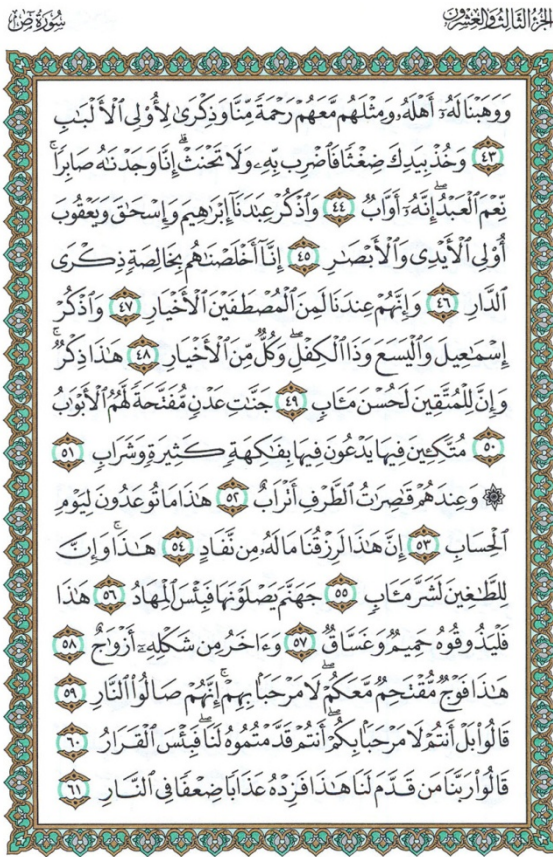 الجزء الثالث والعشرون
سورة ص
وَوَهَبْنَا لَهُۥٓ أَهْلَهُۥ وَمِثْلَهُم مَّعَهُمْ رَحْمَةً مِّنَّا وَذِكْرَىٰ لِأُو۟لِى ٱلْأَلْبَٰبِ
٤٣ وَخُذْ بِيَدِكَ ضِغْثًا فَٱضْرِب بِّهِۦ وَلَا تَحْنَثْ ۗ إِنَّا وَجَدْنَٰهُ صَابِرًا ۚ
نِّعْمَ ٱلْعَبْدُ ۖ إِنَّهُۥٓ أَوَّابٌ ٤٤ وَٱذْكُرْ عِبَٰدَنَآ إِبْرَٰهِيمَ وَإِسْحَٰقَ وَيَعْقُوبَ
أُو۟لِى ٱلْأَيْدِى وَٱلْأَبْصَٰرِ ٤٥ إِنَّآ أَخْلَصْنَٰهُم بِخَالِصَةٍ ذِكْرَى
ٱلدَّارِ ٤٦ وَإِنَّهُمْ عِندَنَا لَمِنَ ٱلْمُصْطَفَيْنَ ٱلْأَخْيَارِ ٤٧ وَٱذْكُرْ
إِسْمَٰعِيلَ وَٱلْيَسَعَ وَذَا ٱلْكِفْلِ ۖ وَكُلٌّ مِّنَ ٱلْأَخْيَارِ ٤٨ هَٰذَا ذِكْرٌ ۚ
وَإِنَّ لِلْمُتَّقِينَ لَحُسْنَ مَـَٔابٍ ٤٩ جَنَّٰتِ عَدْنٍ مُّفَتَّحَةً لَّهُمُ ٱلْأَبْوَٰبُ
٥٠ مُتَّكِـِٔينَ فِيهَا يَدْعُونَ فِيهَا بِفَٰكِهَةٍ كَثِيرَةٍ وَشَرَابٍ ٥١
۞ وَعِندَهُمْ قَٰصِرَٰتُ ٱلطَّرْفِ أَتْرَابٌ ٥٢ هَٰذَا مَا تُوعَدُونَ لِيَوْمِ
ٱلْحِسَابِ ٥٣ إِنَّ هَٰذَا لَرِزْقُنَا مَا لَهُۥ مِن نَّفَادٍ ٥٤ هَٰذَا ۚ وَإِنَّ
لِلطَّٰغِينَ لَشَرَّ مَـَٔابٍ ٥٥ جَهَنَّمَ يَصْلَوْنَهَا فَبِئْسَ ٱلْمِهَادُ ٥٦ هَٰذَا
فَلْيَذُوقُوهُ حَمِيمٌ وَغَسَّاقٌ ٥٧ وَءَاخَرُ مِن شَكْلِهِۦٓ أَزْوَٰجٌ ٥٨
هَٰذَا فَوْجٌ مُّقْتَحِمٌ مَّعَكُمْ ۖ لَا مَرْحَبًۢا بِهِمْ ۚ إِنَّهُمْ صَالُوا۟ ٱلنَّارِ ٥٩
قَالُوا۟ بَلْ أَنتُمْ لَا مَرْحَبًۢا بِكُمْ ۖ أَنتُمْ قَدَّمْتُمُوهُ لَنَا ۖ فَبِئْسَ ٱلْقَرَارُ ٦٠
قَالُوا۟ رَبَّنَا مَن قَدَّمَ لَنَا هَٰذَا فَزِدْهُ عَذَابًا ضِعْفًا فِى ٱلنَّارِ ٦١